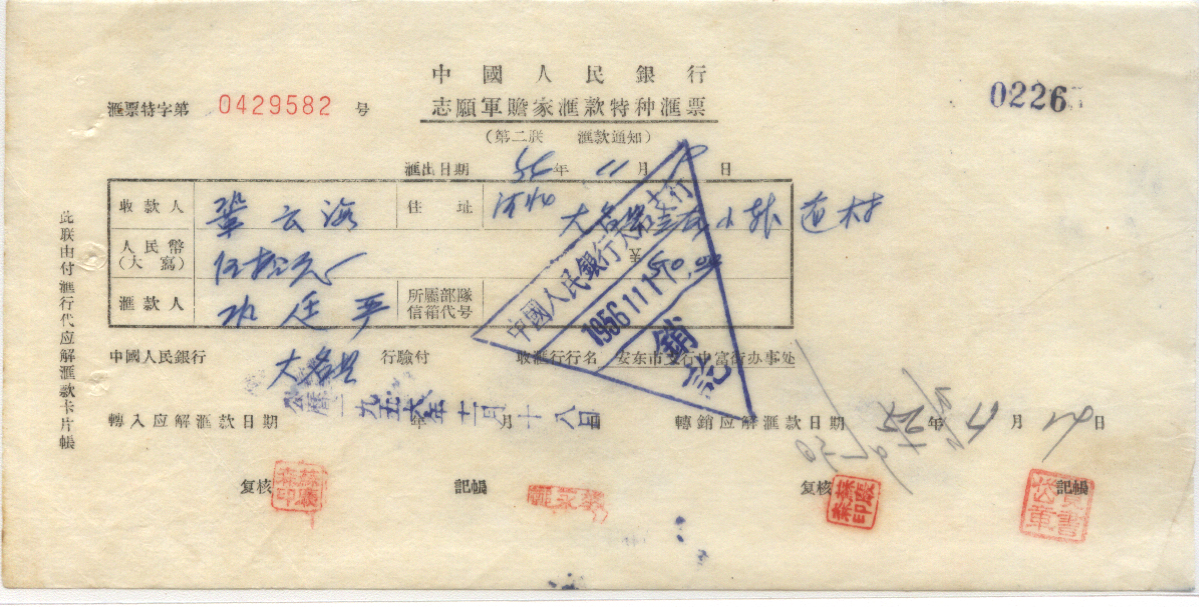 中國人民銀行
志願軍贍家滙款特种滙票
(第二联 滙款通知)
滙票特字第 0429582 号
0226
滙出日期 56年 11月 日
收款人 鞏云海 住址 河北大名 小 村
人民幣(大寫) 伍拾元 ¥50.00
滙款人 廷平 所屬部隊信箱代号
中国人民銀行 大名县 行驗付 收滙行行名 安东市支行中富街办事处
中國人民銀行大名支行
1956.11.1
銷訖
公曆一九五六年十一月十八日
轉入应解滙款日期 年 月 日 轉銷应解滙款日期 年 月 日
复核 記帳 复核 記帳
此联由付滙行代应解滙款卡片帳